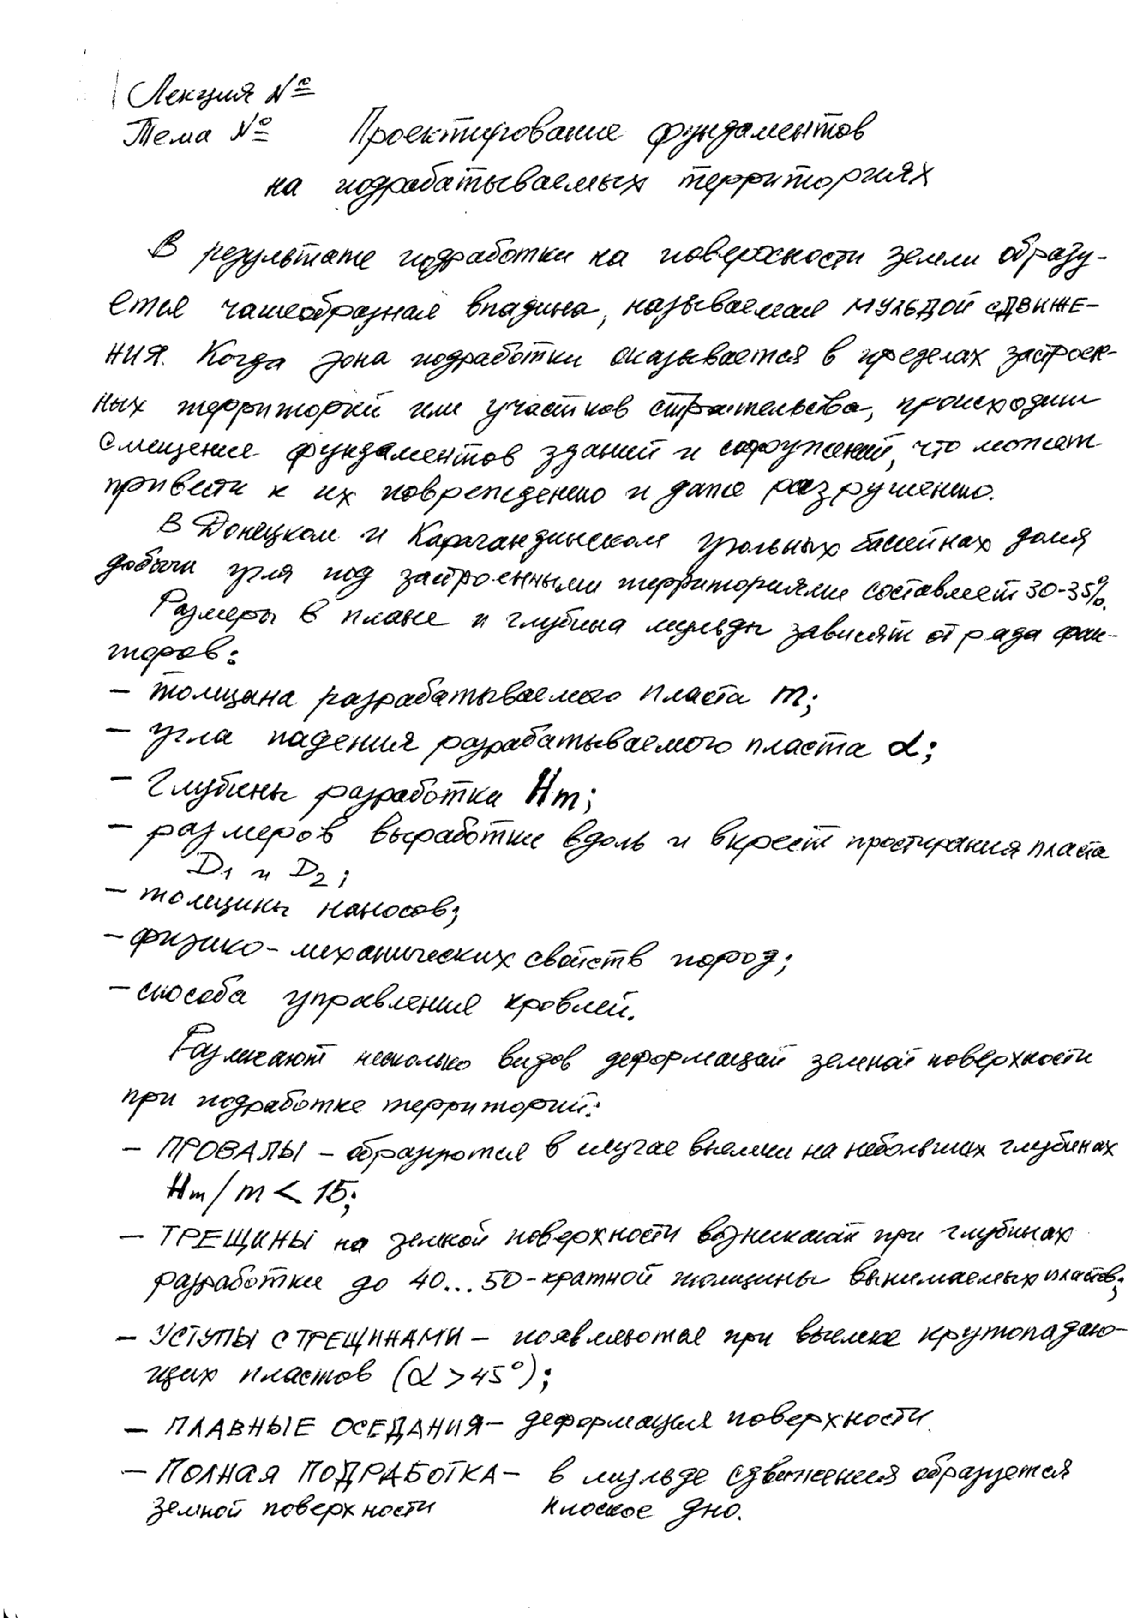 Лекция №
Тема № Проектирование фундаментов
на подрабатываемых территориях
В результате подработки на поверхности земли образу-
ется чашеобразная впадина, называемая МУЛЬДОЙ СДВИЖЕ-
НИЯ. Когда зона подработки оказывается в пределах застроен-
ных территорий или участков строительства, происходит
смещение фундаментов зданий и сооружений, что может
привести к их повреждению и даже разрушению.
В Донецком и Карагандинском угольных бассейнах доля
добычи угля под застроенными территориями составляет 30-35%.
Размеры в плане и глубина мульды зависят от ряда фак-
торов:
- толщина разрабатываемого пласта m;
- угла падения разрабатываемого пласта α;
- глубины разработки Hm;
- размеров выработки вдоль и вкрест простирания пласта
D1 и D2;
- толщины наносов;
- физико-механических свойств пород;
- способа управления кровлей.
Различают несколько видов деформаций земной поверхности
при подработке территорий:
- ПРОВАЛЫ - образуются в случае выемки на небольших глубинах
Hm/m < 15;
- ТРЕЩИНЫ на земной поверхности возникают при глубинах
разработки до 40...50-кратной толщины вынимаемых пластов;
- УСТУПЫ С ТРЕЩИНАМИ - появляются при выемке крутопадаю-
щих пластов (α > 45°);
- ПЛАВНЫЕ ОСЕДАНИЯ - деформация поверхности.
- ПОЛНАЯ ПОДРАБОТКА - в мульде сдвижения образуется
земной поверхности плоское дно.